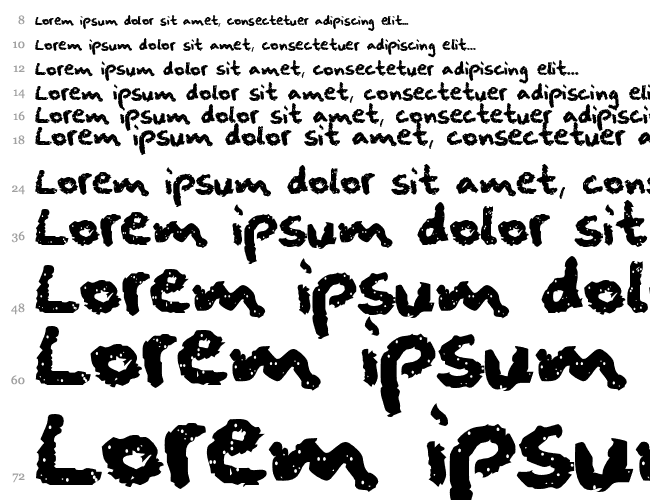 8 Lorem ipsum dolor sit amet, consectetuer adipiscing elit...
10 Lorem ipsum dolor sit amet, consectetuer adipiscing elit...
12 Lorem ipsum dolor sit amet, consectetuer adipiscing elit...
14 Lorem ipsum dolor sit amet, consectetuer adipiscing eli
16 Lorem ipsum dolor sit amet, consectetuer adipisci
18 Lorem ipsum dolor sit amet, consectetuer a
24 Lorem ipsum dolor sit amet, cons
36 Lorem ipsum dolor sit
48 Lorem ipsum dol
60 Lorem ipsum
72 Lorem ipsu